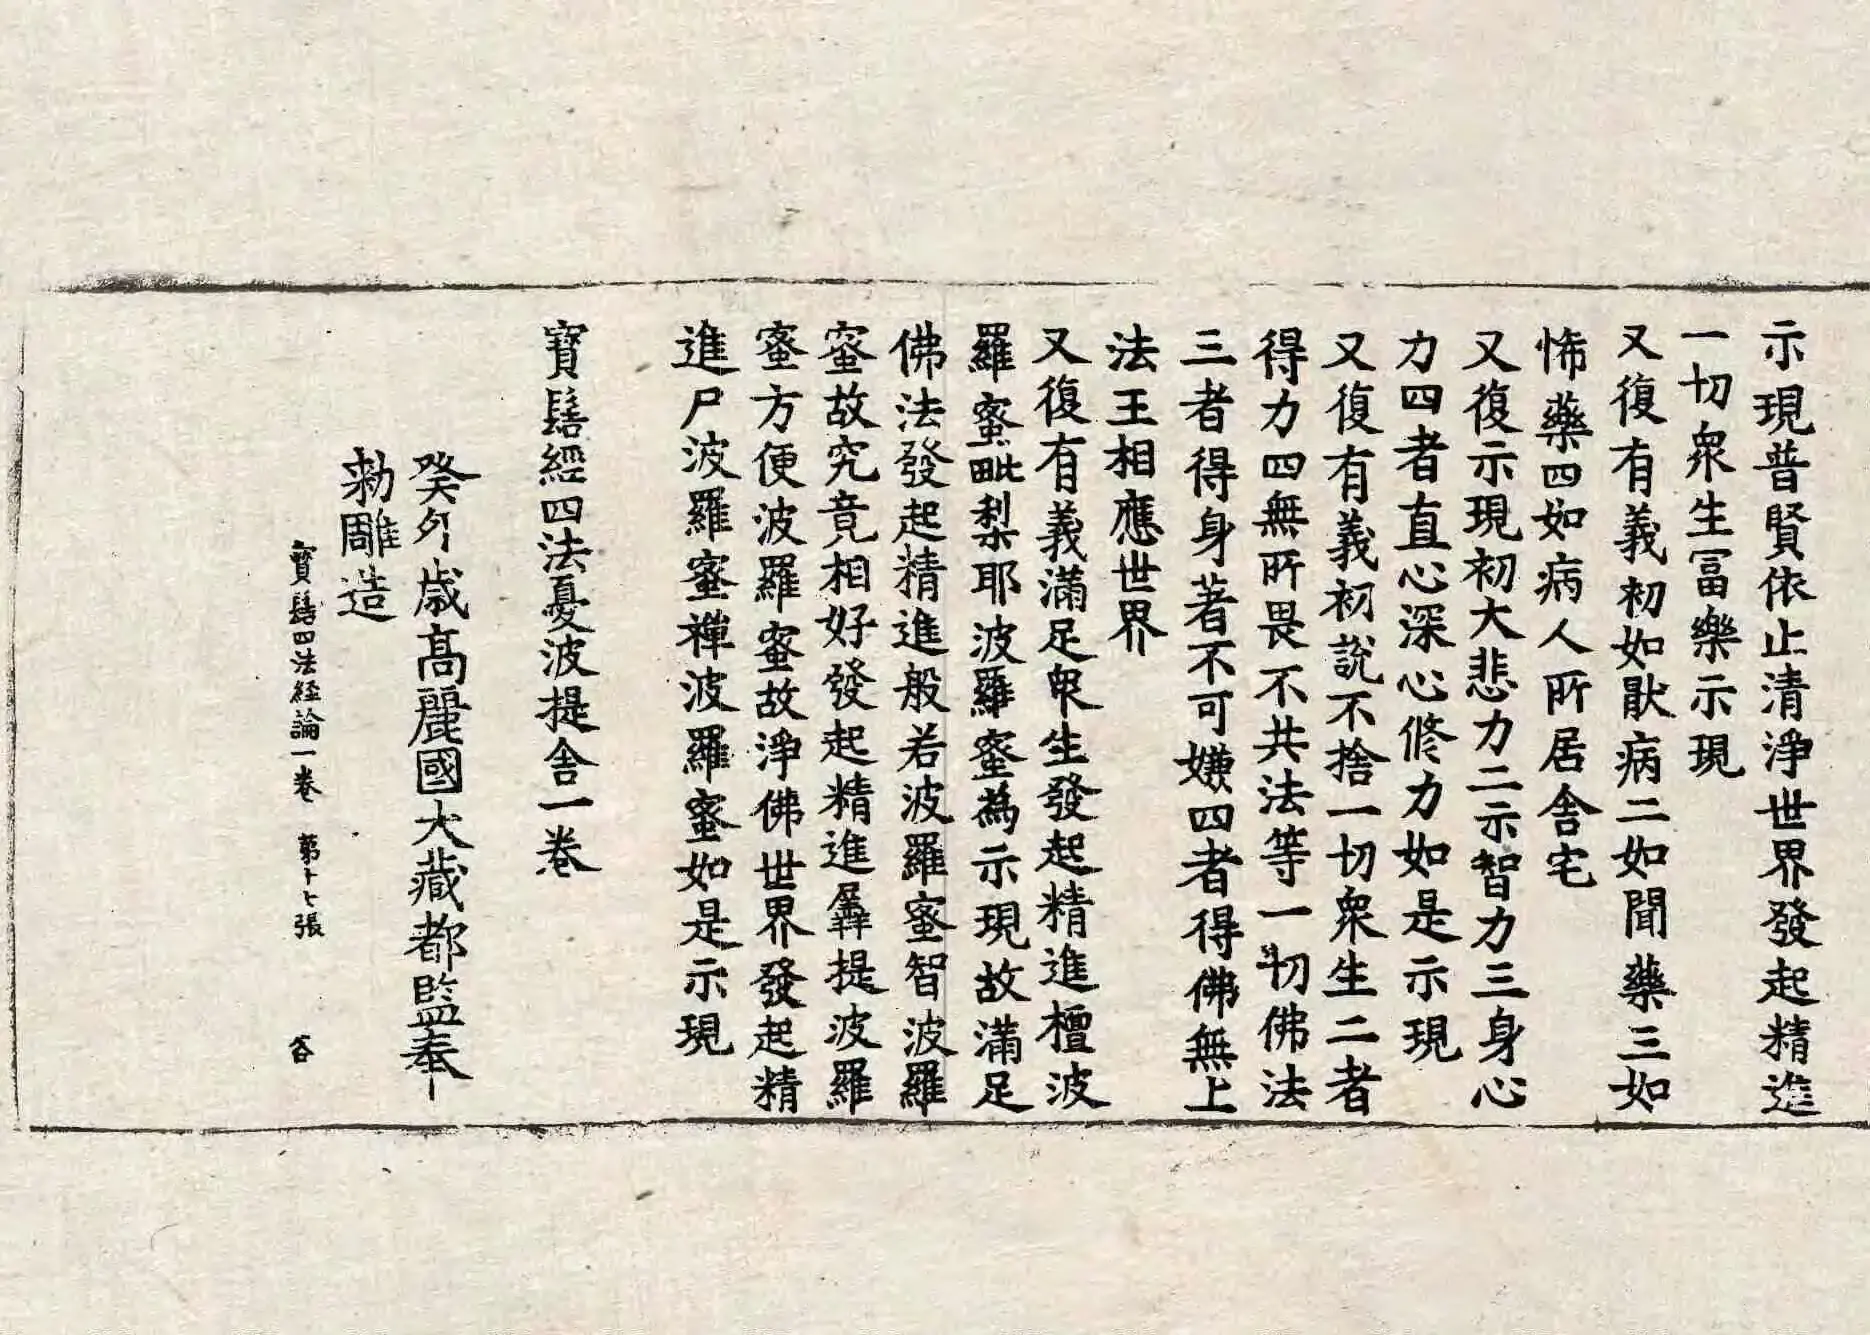 示現普賢依止清淨世界發起精進
一切衆生冨樂示現
又復有義初如猒病二如聞藥三如
怖藥四如病人所居舍宅
又復示現初大悲力二示智力三身心
力四者直心深心修力如是示現
又復有義初說不捨一切衆生二者
得力四無所畏不共法等一切佛法
三者得身著不可嫌四者得佛無上
法王相應世界
又復有義滿足衆生發起精進檀波
羅蜜毗梨耶波羅蜜為示現故滿足
佛法發起精進般若波羅蜜智波羅
蜜故究竟相好發起精進羼提波羅
蜜方便波羅蜜故淨佛世界發起精
進尸波羅蜜禪波羅蜜如是示現
寶髻經四法憂波提舍一卷
癸夘歲高麗國大藏都監奉
勑雕造
寶髻四法経論一卷 第十七張 谷